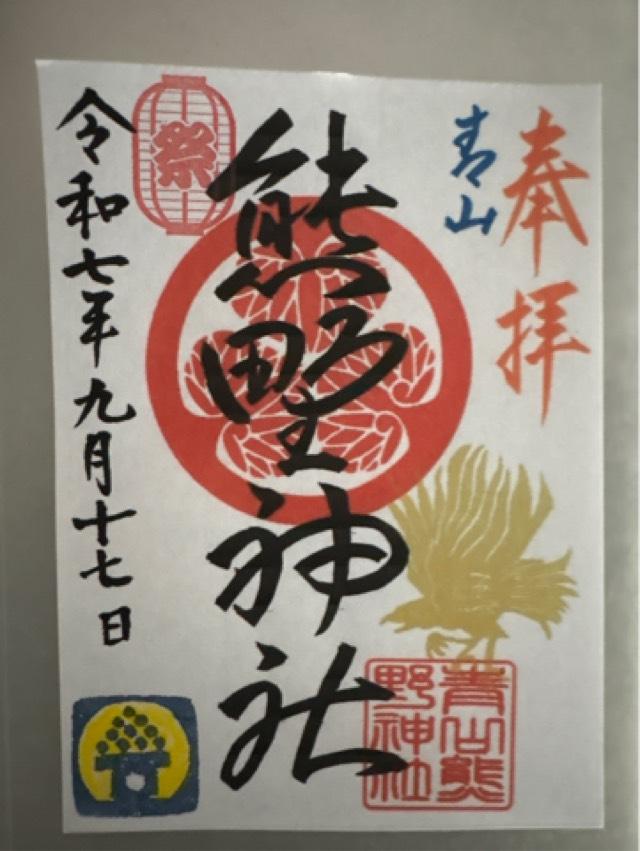 奉拝
青山
熊野神社
祭
令和七年九月十七日
青山熊
野神社